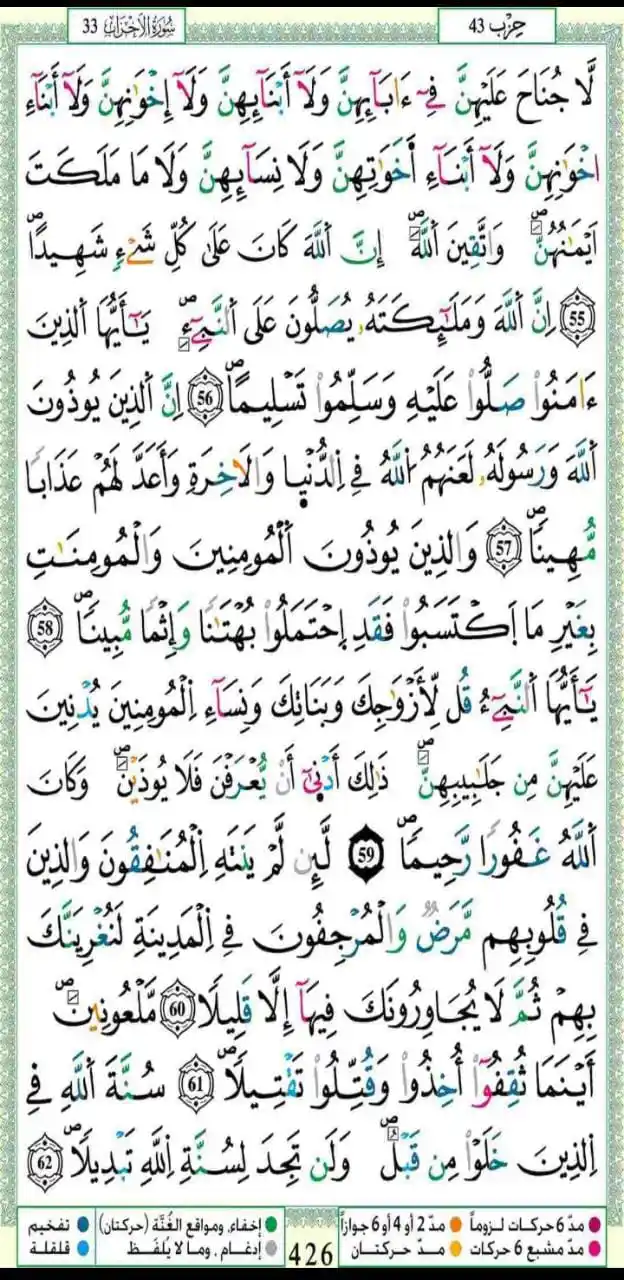 سُورَةُ الْأَحْزَابِ 33
حِزْب 43
لَّا جُنَاحَ عَلَيْهِنَّ فِےٓ ءَابَآئِهِنَّ وَلَآ أَبْنَآئِهِنَّ وَلَآ إِخْوَٰنِهِنَّ وَلَآ أَبْنَآءِ
اِ۪خْوَٰنِهِنَّ وَلَآ أَبْنَآءِ اَ۬خَوَٰتِهِنَّ وَلَا نِسَآئِهِنَّ وَلَا مَا مَلَكَتَ
اَيْمَٰنُهُنَّۖ وَاتَّقِينَ اَ۬للَّهَۖ إِنَّ اَ۬للَّهَ كَانَ عَلَىٰ كُلِّ شَےْءٖ شَهِيداًۖ
55 اِنَّ اَ۬للَّهَ وَمَلَٰٓئِكَتَهُۥ يُصَلُّونَ عَلَى اَ۬لنَّبِےٓءِۖ يَٰٓأَيُّهَا اَ۬لذِينَ
ءَامَنُواْ صَلُّواْ عَلَيْهِ وَسَلِّمُواْ تَسْلِيماًۖ 56 اِنَّ اَ۬لذِينَ يُوذُونَ
اَ۬للَّهَ وَرَسُولَهُۥ لَعَنَهُمُ اُ۬للَّهُ فِے اِ۬لدُّنْي۪ا وَالَاخِرَةِ وَأَعَدَّ لَهُمْ عَذَاباٗ
مُّهِيناًۖ 57 وَالذِينَ يُوذُونَ اَ۬لْمُومِنِينَ وَالْمُومِنَٰتِ
بِغَيْرِ مَا اَ۪كْتَسَبُواْ فَقَدِ اِ۪حْتَمَلُواْ بُهْتَٰناٗ وَإِثْماٗ مُّبِيناًۖ 58
يَٰٓأَيُّهَا اَ۬لنَّبِےٓءُ قُل لِّأَزْوَٰجِكَ وَبَنَاتِكَ وَنِسَآءِ اِ۬لْمُومِنِينَ يُدْنِينَ
عَلَيْهِنَّ مِن جَلَٰبِيبِهِنَّۖ ذَٰلِكَ أَدْن۪ىٰٓ أَنْ يُّعْرَفْنَ فَلَا يُوذَيْنَۖ وَكَانَ
اَ۬للَّهُ غَفُوراٗ رَّحِيماًۖ 59 لَّئِن لَّمْ يَنتَهِ اِ۬لْمُنَٰفِقُونَ وَالذِينَ
فِے قُلُوبِهِم مَّرَضٞ وَالْمُرْجِفُونَ فِے اِ۬لْمَدِينَةِ لَنُغْرِيَنَّكَ
بِهِمْ ثُمَّ لَا يُجَاوِرُونَكَ فِيهَآ إِلَّا قَلِيلاٗ 60 مَّلْعُونِينَۖ
أَيْنَمَا ثُقِفُوٓاْ أُخِذُواْ وَقُتِّلُواْ تَقْتِيلاًۖ 61 سُنَّةَ اَ۬للَّهِ فِے
اِ۬لذِينَ خَلَوْاْ مِن قَبْلُۖ وَلَن تَجِدَ لِسُنَّةِ اِ۬للَّهِ تَبْدِيلاًۖ 62
مدّ 6 حركات لـزوماً مدّ 2 أو 4 أو 6 جوازاً إخفاء، ومواقع الغُنَّة (حركتان) تفخيم
مدّ مشبع 6 حركات مـدّ حركتـان 426 إدغام، وما لا يُلفَـظ قلقلة